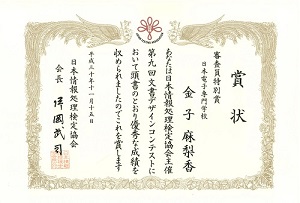 賞状
審査員特別賞
日本電子専門学校
金子 麻梨香
あなたは日本情報処理検定協会主催
第九回文書デザインコンテストに
おいて頭書のとおり優秀な成績を
収められましたのでこれを賞します
平成三十年十一月十五日
日本情報処理検定協会
会長